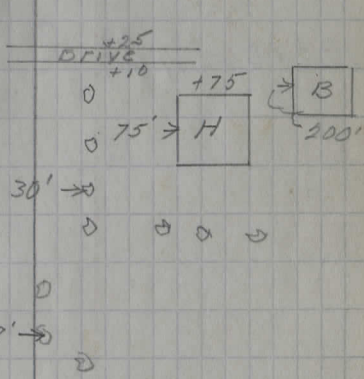 +25
Drive
+10
+75
75' H
B
200'
30'